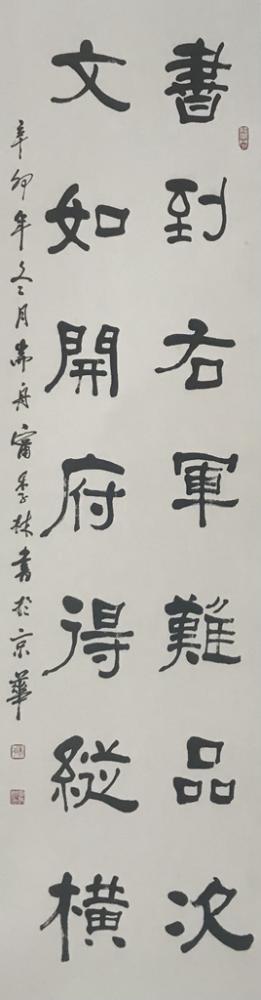 書到右軍難品次
文如開府得縱橫
辛卯年冬月 舟甯 林書於京華